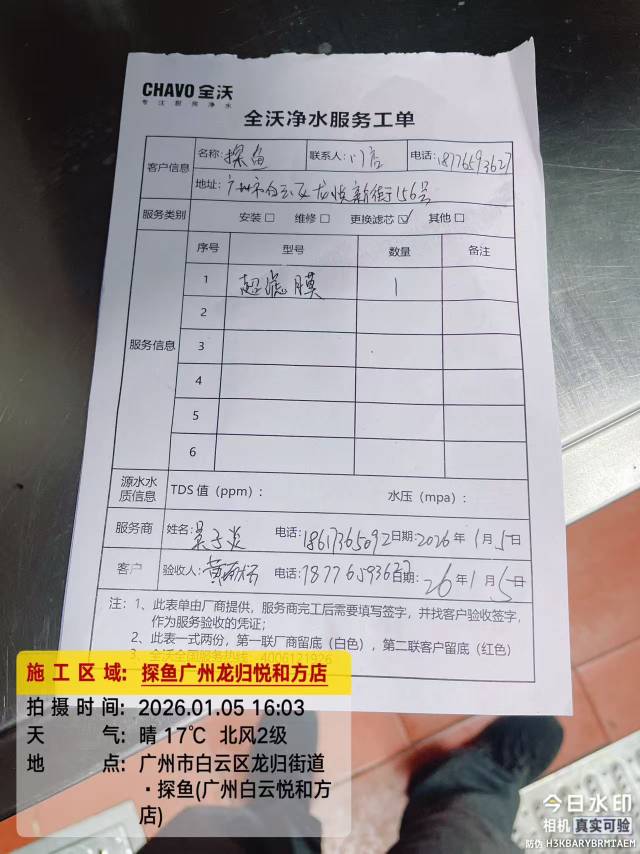 CHAVO 全沃
专注厨房净水
全沃净水服务工单
客户信息 名称: 探鱼 联系人: 门店 电话: 18776593627
地址: 广州市白云区龙悦新街156号
服务类别 安装□ 维修□ 更换滤芯☑ 其他□
服务信息 序号 型号 数量 备注
1 超滤膜 1
2
3
4
5
6
源水水质信息 TDS 值 (ppm): 水压 (mpa):
服务商 姓名: 电话: 18617365092 日期: 2026年1月5日
客户 验收人: 黄 电话: 18776593627 日期: 26年1月5日
注: 1、此表单由厂商提供，服务商完工后需要填写签字，并找客户验收签字，
作为服务验收的凭证;
2、此表一式两份，第一联厂商留底 (白色)，第二联客户留底 (红色)
3、全沃全国服务热线: 4006121926
施工区域: 探鱼广州龙归悦和方店
拍摄时间: 2026.01.05 16:03
天气: 晴 17℃ 北风2级
地点: 广州市白云区龙归街道
·探鱼(广州白云悦和方
店)
今日水印
相机 真实可验
防伪 H3KBARYBRMTAEM